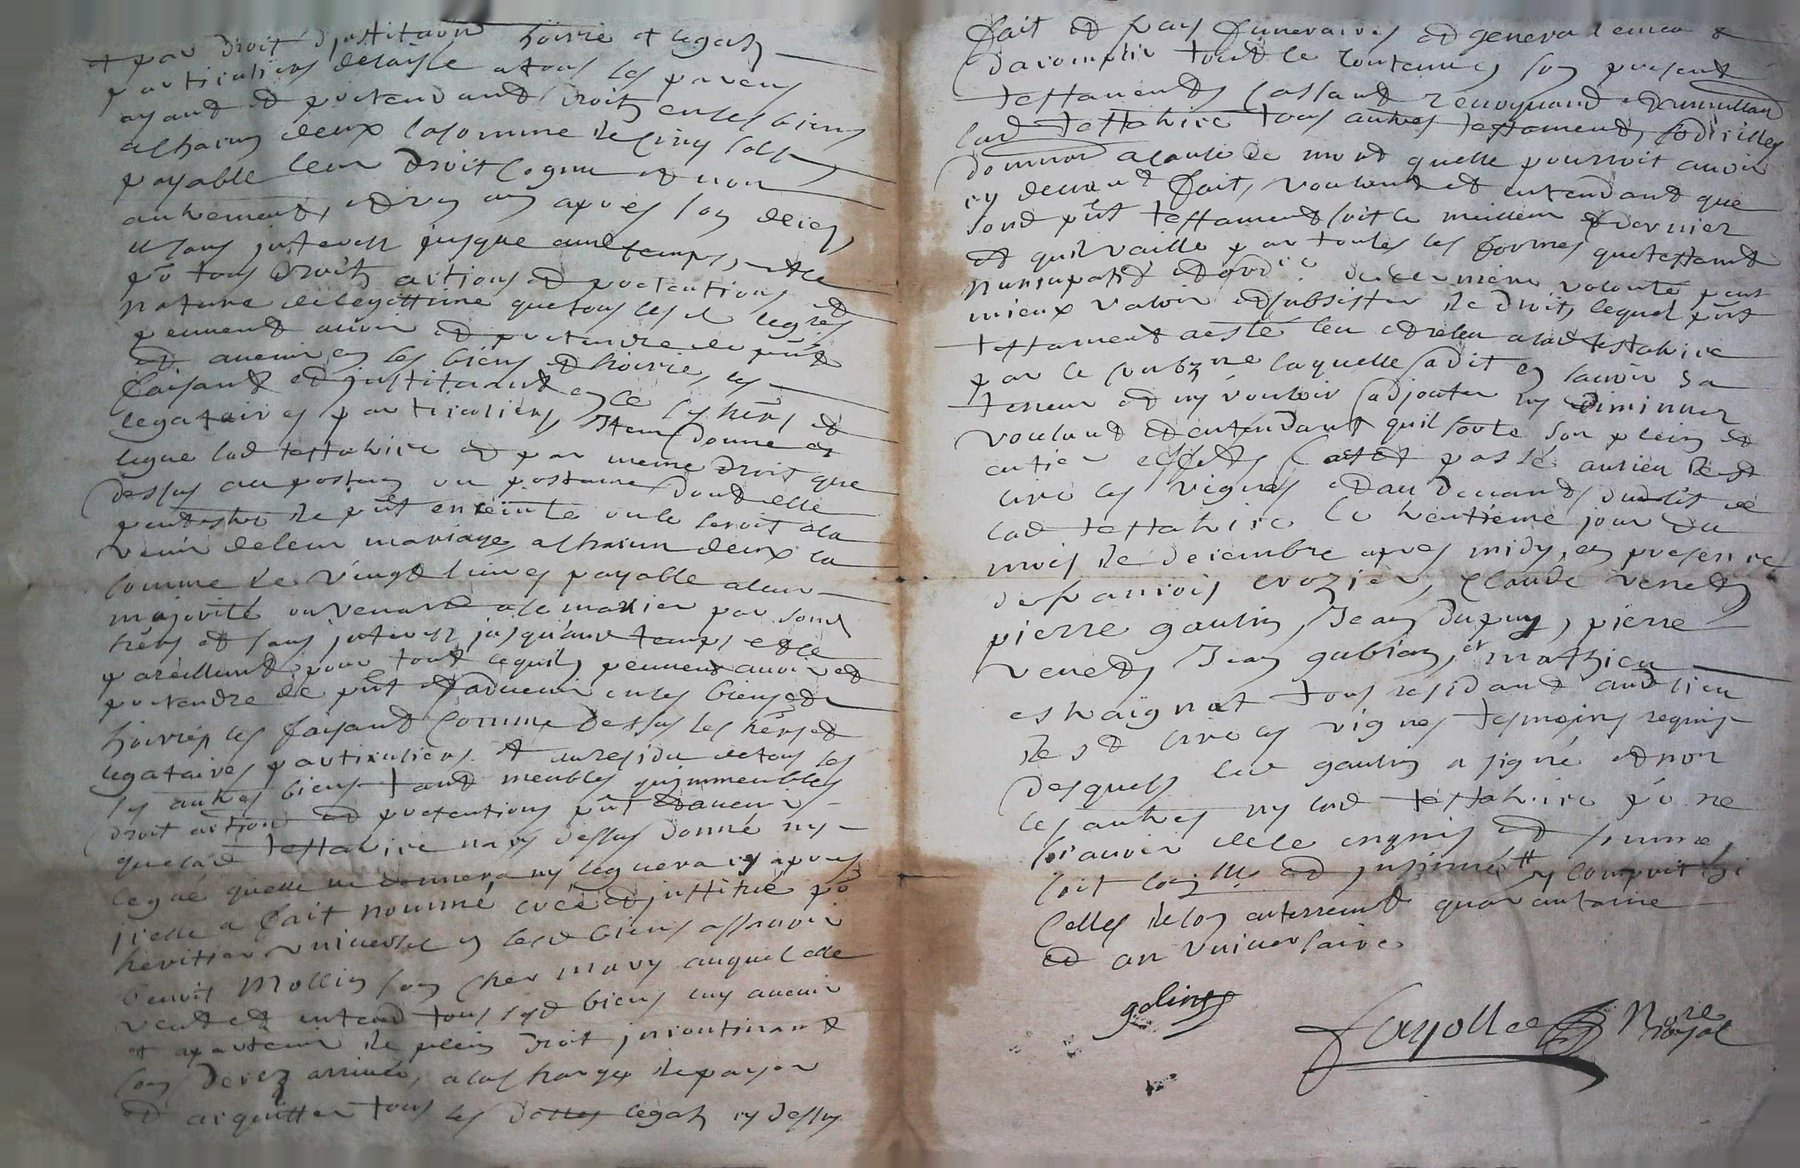 et par droit djnstitaon hoirie et legatz
particuliers delaisse a tous les parens
ayant et pretendant droitz en ses biens
a chacun deux la somme de cinq solz
payable leur droit cognu et non
autrement, et dun an apres son deces,
et sans jnterest jusque aud temps, et ce
po tous droitz actions et pretentions et
nature de legittime que tous lesd legres
peuvent avoir et pretendre de pnt
et avenir en ses biens et hoirie, les
faisant et jnstituant en ce ses hers et
legataires particuliers Item donne et
legue lad testatrice et par meme droit que
dessus au postum ou postume dont elle
peut estre de pnt enceinte ou le seroit a la
venir de leur mariage, a chacun deux la
somme de vingt livres payable a leur
majorité ou venant a se marier par sond
hers et sans jnterest jusqu'aud temps et ce
pareillemt pour tout ce quils peuvent avoir et
pretendre de pnt et advenir en ses biens et
hoiries les faisant comme dessus ses hers et
legataires particuliers et au residu de tous les
ses autres biens tant meubles qujmmeubles
droit action et pretentions pnt et avenir
que lad testatrice na cy dessus donné ny
legué quelle ne donnera ny leguera cy apres
jcelle a fait nommé créé et jnstitué po
heritier universel en sesd biens assavoir
benoit Mollin son cher mary auquel elle
veut et entend tous sesd biens luy avenir
et apartenir de plein droit jncontinant
son decez arrivé, a la charge de payer
et acquitter tous les dettes legatz cy dessus
fait et frais funeraires et generalement
dacomplir tout le contenu en son present
testament, cassant revoquant et annullant
lad testatrice tous autres testament, codicilles
donnaon a cause de mort quelle pourroit avoir
cy devant fait, voulant et entendant que
sond pnt testament soit le meilleur et dernier
et quil vaille par toutes les formes que testamt
nuncupatif et ordre de derniere volonté peut
mieux valoir et subsister de droit, lequel pnt
testament a esté leu et releu a lad testatrice
par le soubzne laquelle a dit en savoir sa
teneur et ny vouloir adjouter ny diminuer
voulant et entendant quil sorte son plein et
entier effet, fait et passé au lieu de st
cire les vignes et au devant du lit de
lad testatrice le huitieme jour du
mois de decembre apres midy, en presence
de francois crozier, claude venet,
pierre gaulin, Jean dupuy, pierre
venet, Jean gubian, et mathieu
eshaignat tous residant aud lieu
de st cire les vignes tesmoins requis
desquels led gaulin a signé et non
les autres ny lad testatrice po ne
scavoir de ce enquis et somme,
soit et jnsinué # y compris
celles de son enterremt quarantaine
et anniversaire
galin
fayolle Nore royal